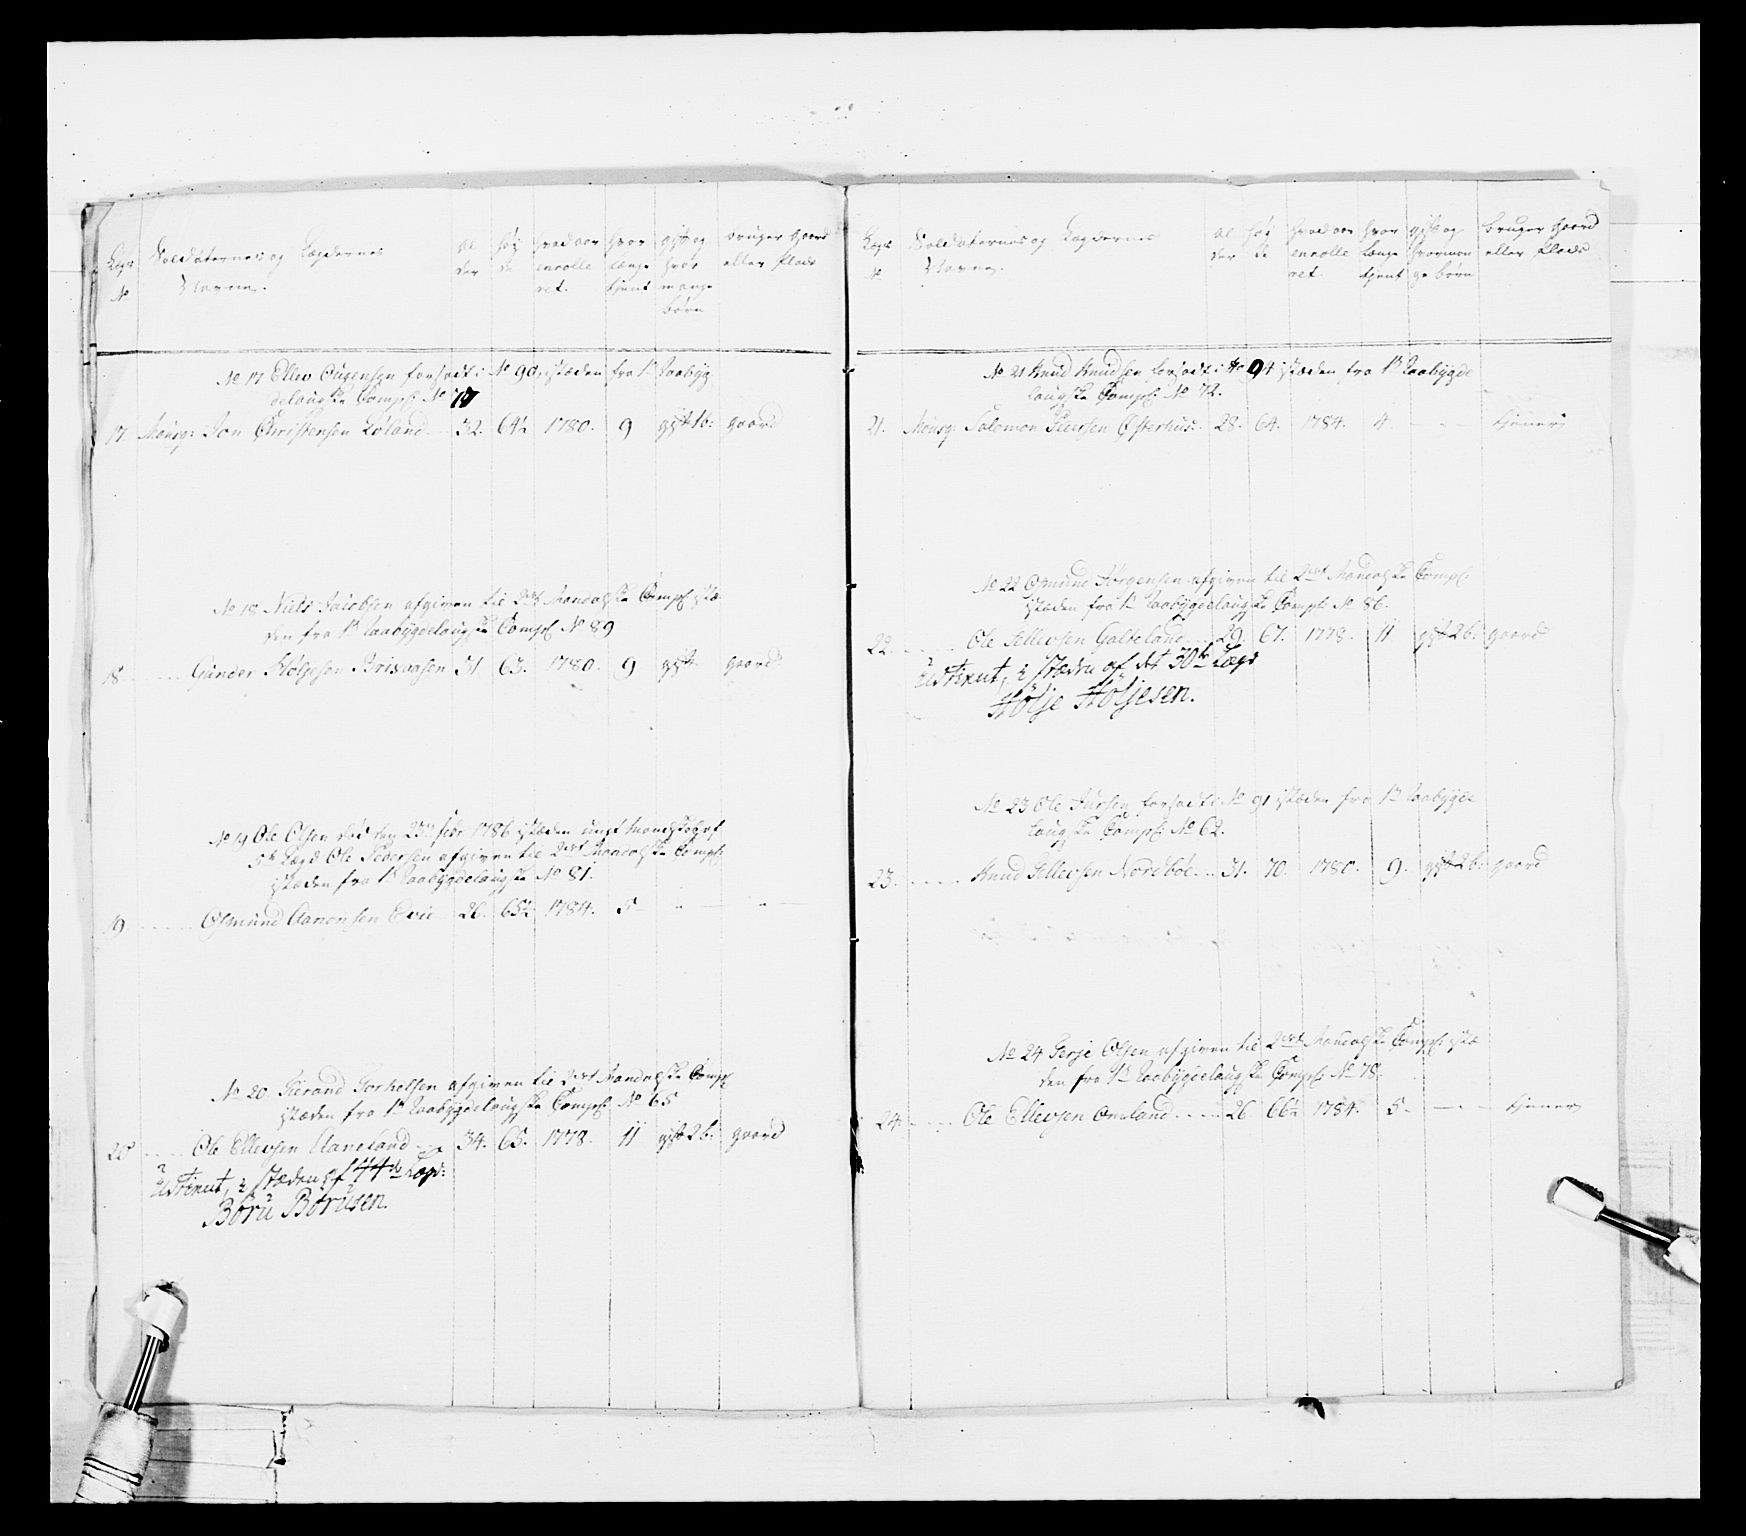 Compl No
Soldaternes og Lægdernes
Navne.
al
der
høj
de
hvad aar
enrolle
ret.
hvor
længe
tjent
gift og
hvor
mange
børn
bruger gaard
eller Plads
No 17 Ellev Ougensen forsadt i No 90, istæden fra 1te Raabyg
delaugske Compl: No 77
17 Mousq: Jon Christensen Løland 32. 64½ 1780. 9 gift 1b: gaard
No 18 Niels Jacobsen afgiven til 2det Mandalske Compl: istæ
den fra 1te Raabygdelaugske Compl: No 89
18 Gunder Holjesen 31 63. 1780. 9 gift gaard
No 19 Ole Olsen død den 23de febr 1786 istæden
5te Lægd Ole Pedersen afgiven til 2det Mandalske Compl:
istæden fra 1te Raabygdelaugske No 81.
19 Osmund Aanensen Evie 26. 65½ 1784. 5 -
No 20 Torkelsen afgiven til 2det Mandalske Compl
istæden fra 1te Raabygdelaugske Compl: No 65
20 Ole Ellevsen Aaneland 34. 65. 1778. 11 gift 2b: gaard
Udtient, i stæden af 44de Lægd:
Børu Børusen.
Compl No
Soldaternes og Lægdernes
Navne.
al
der
høj
de
hvad aar
enrolle
ret.
hvor
længe
tjent
gift og
hvorman
ge børn
bruger gaard
eller Plads
No 21 Knud Knudsen forsadt i No 94 istæden fra 1te Raabygde
laugske Compl: No 72.
21. Mousq: Salomon Peersen Østerhus 28. 64. 1784. 4. - - tjener
No 22 Osmund Jørgensen afgiven til 2det Mandalske Compl:
istæden fra 1te Raabygdelaugske Compl: No 86.
22. Ole Tellevsen Galteland 29. 67. 1778. 11 gift 2b: gaard
Udtient, i stæden af det 30te Lægd
Hølje Høljesen.
No 23 Ole forsadt i No 91 istæden fra 1te Raabygde
laugske Compl: No 62.
23. Knud Tellevsen Nordbøe 31. 70. 1780. 9. gift 2b: gaard
No 24 Terje Olsen afgiven til 2det Mandalske Compl: istæ
den fra 1te Raabygdelaugske Compl: No 78.
24 Ole Ellevsen Omland 26. 66½ 1784. 5. - - tjener